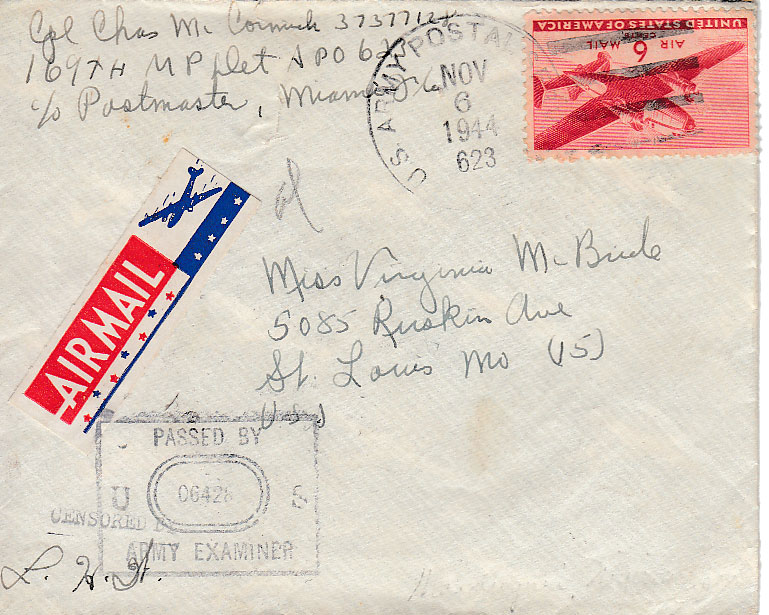 Cpl Chas Mc Cormick 37377124
169TH MP Det APO 623
c/o Postmaster, Miami, Fla
U S ARMY POSTAL
NOV
6
1944
623
UNITED STATES OF AMERICA
AIR MAIL
6
CENTS
AIRMAIL
Miss Virginia McBride
5085 Ruskin Ave
St. Louis Mo (15)
USA
PASSED BY
U 06428 S
CENSORED BY
ARMY EXAMINER
L. H. H.